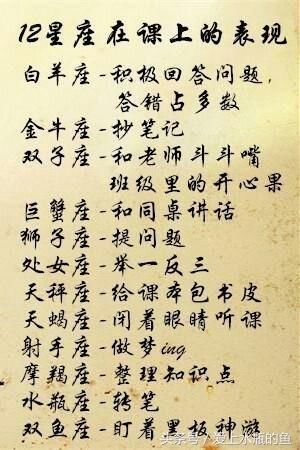 12星座在课上的表现
白羊座-积极回答问题,
答错占多数
金牛座-抄笔记
双子座-和老师斗斗嘴
班级里的开心果
巨蟹座-和同桌讲话
狮子座-提问题
处女座-举一反三
天秤座-给课本包书皮
天蝎座-闭着眼睛听课
射手座-做梦ing
摩羯座-整理知识点
水瓶座-转笔
双鱼座-盯着黑板神游
头条号/爱上水瓶的鱼